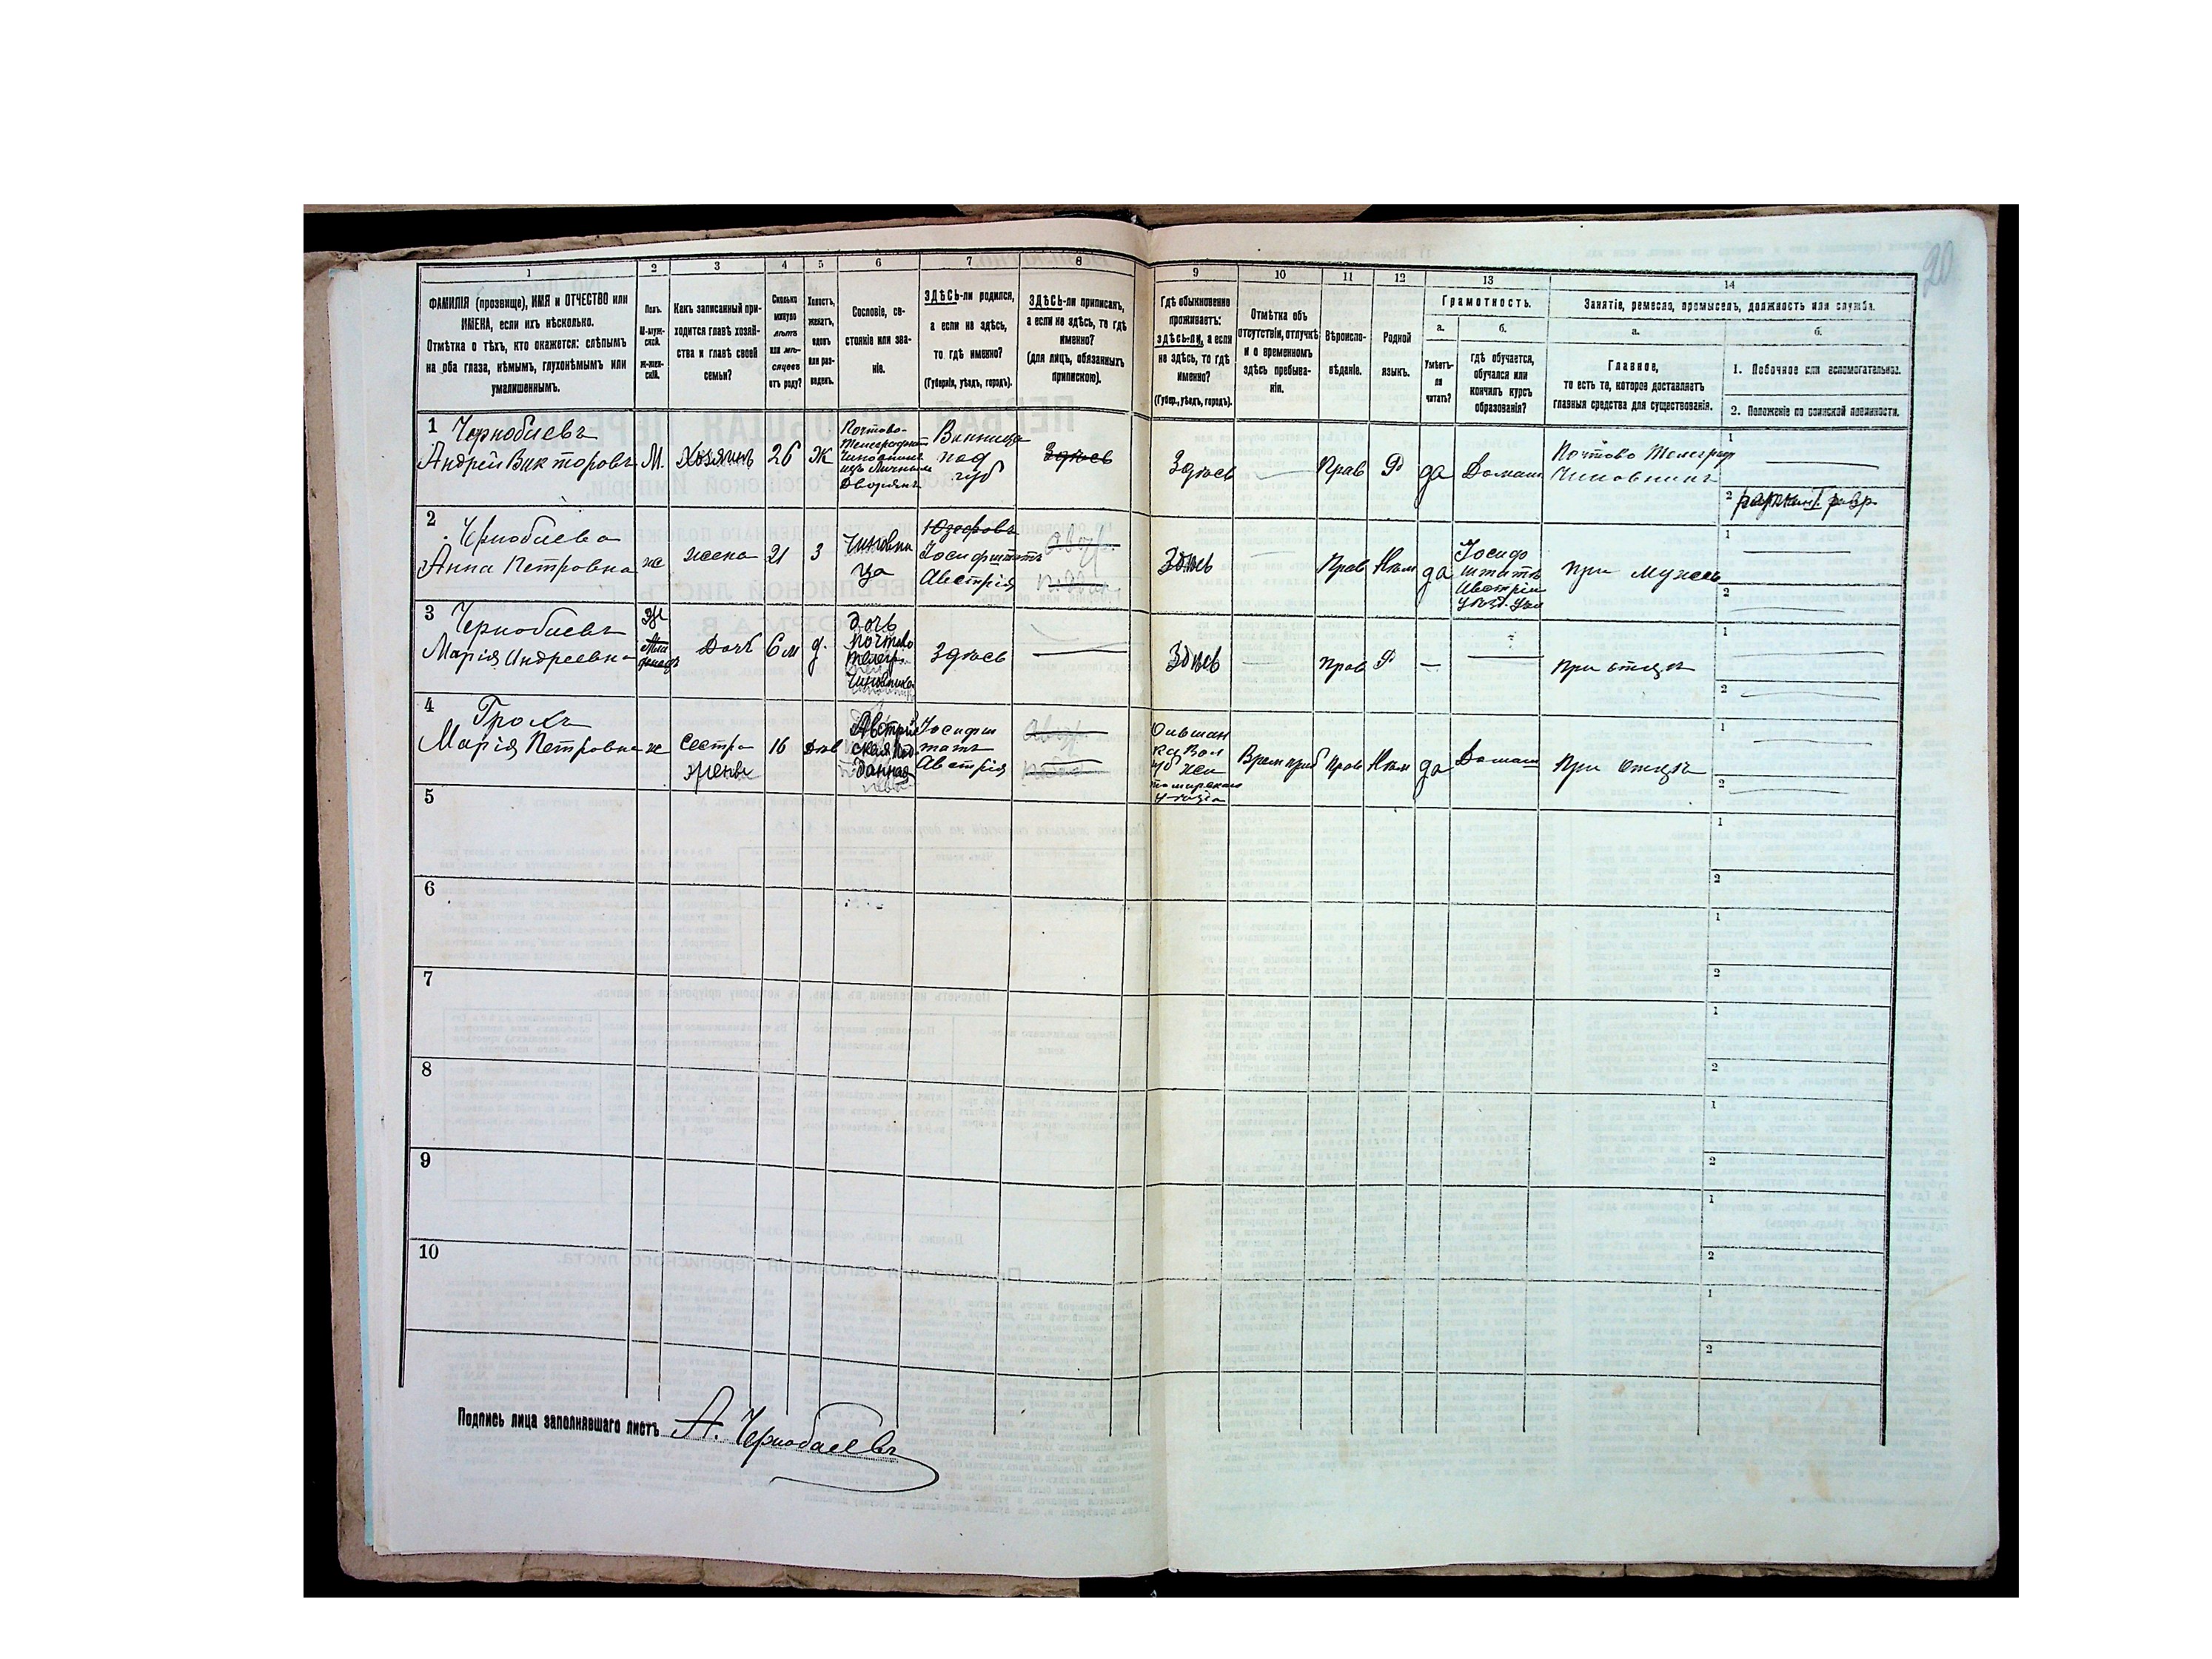 20
1 2 3 4 5 6 7 8 9 10 11 12 13 14
ФАМИЛІЯ (прозвище), ИМЯ и ОТЧЕСТВО или
ИМЕНА, если ихъ нѣсколько.
Отмѣтка о тѣхъ, кто окажется: слѣпымъ
на оба глаза, нѣмымъ, глухонѣмымъ или
умалишеннымъ.
Полъ.
М-муж-
ской.
Ж-жен-
скій.
Какъ записанный при-
ходится главѣ хозяй-
ства и главѣ своей
семьи?
Сколько
минуло
лѣтъ
или мѣ-
сяцевъ
отъ роду?
Холостъ,
женатъ,
вдовъ
или раз-
веденъ.
Сословіе, со-
стояніе или зва-
ніе.
ЗДѢСЬ-ли родился,
а если не здѣсь,
то гдѣ именно?
(Губернія, уѣздъ, городъ).
ЗДѢСЬ-ли приписанъ,
а если не здѣсь, то гдѣ
именно?
(для лицъ, обязанныхъ
припискою).
Гдѣ обыкновенно
проживаетъ:
здѣсь-ли, а если
не здѣсь, то гдѣ
именно?
(Губер., уѣздъ, городъ).
Отмѣтка объ
отсутствіи, отлучкѣ
и о временномъ
здѣсь пребыва-
ніи.
Вѣроиспо-
вѣданіе.
Родной
языкъ.
Грамотность.
а.
Умѣетъ-
ли
читать?
б.
гдѣ обучается,
обучался или
кончилъ курсъ
образованія?
Занятіе, ремесло, промыселъ, должность или служба.
а.
Главное,
то есть то, которое доставляетъ
главныя средства для существованія.
б.
1. Побочное или вспомогательное.
2. Положеніе по воинской повинности.
1 Чернобаевъ
Андрей Викторовъ
М.
Хозяинъ
26
Ж
Почтово-
Телеграфный
Чиновникъ
изъ Личныхъ
Дворянъ
Винница
под
губ
Здѣсь
Здѣсь
Прав
Р
да
Домаш
Почтово Телеграф
Чиновникъ
1
2
2 Чернобаева
Анна Петровна
ж
жена
21
З
Чиновни
ца
Іосифштатъ
Австрія
Здѣсь
Прав
Нѣм
да
Іосифо
штатъ
Австріи
при мужѣ
1
2
3 Чернобаевъ
Марія Андреевна
Ж
Дочь
6 м
д.
дочь
почтово
телегр
Чиновника
Здѣсь
Здѣсь
прав
Р
при отцѣ
1
2
4 Грохъ
Марія Петровна
ж
Сестра
жены
16
дѣв
Австрій
ская под
данная
Іосифш
татъ
Австрія
Врем приб
прав
Нѣм
да
Домаш
При отцѣ
1
2
5
1
2
6
1
2
7
1
2
8
1
2
9
1
2
10
1
2
Подпись лица заполнявшаго листъ А. Чернобаевъ